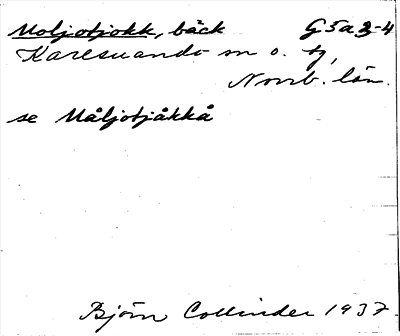 Moljotjokk, bäck G5a3-4
Karesuando sn o. tg,
Norrb. län.
se Måljotjåkkå
Björn Collinder 1937.